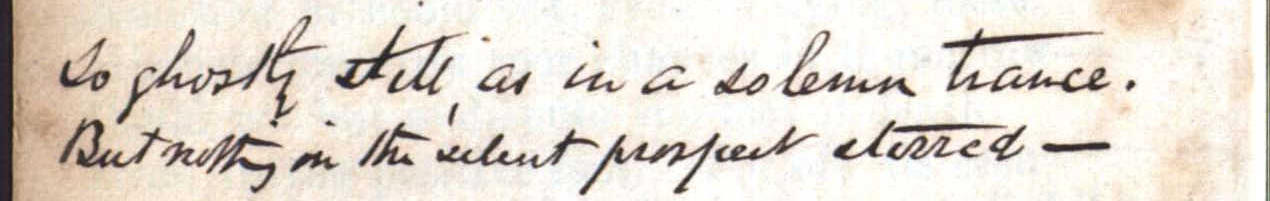 So ghostly still, as in a solemn trance.
But nothing in the silent prospect stirred —